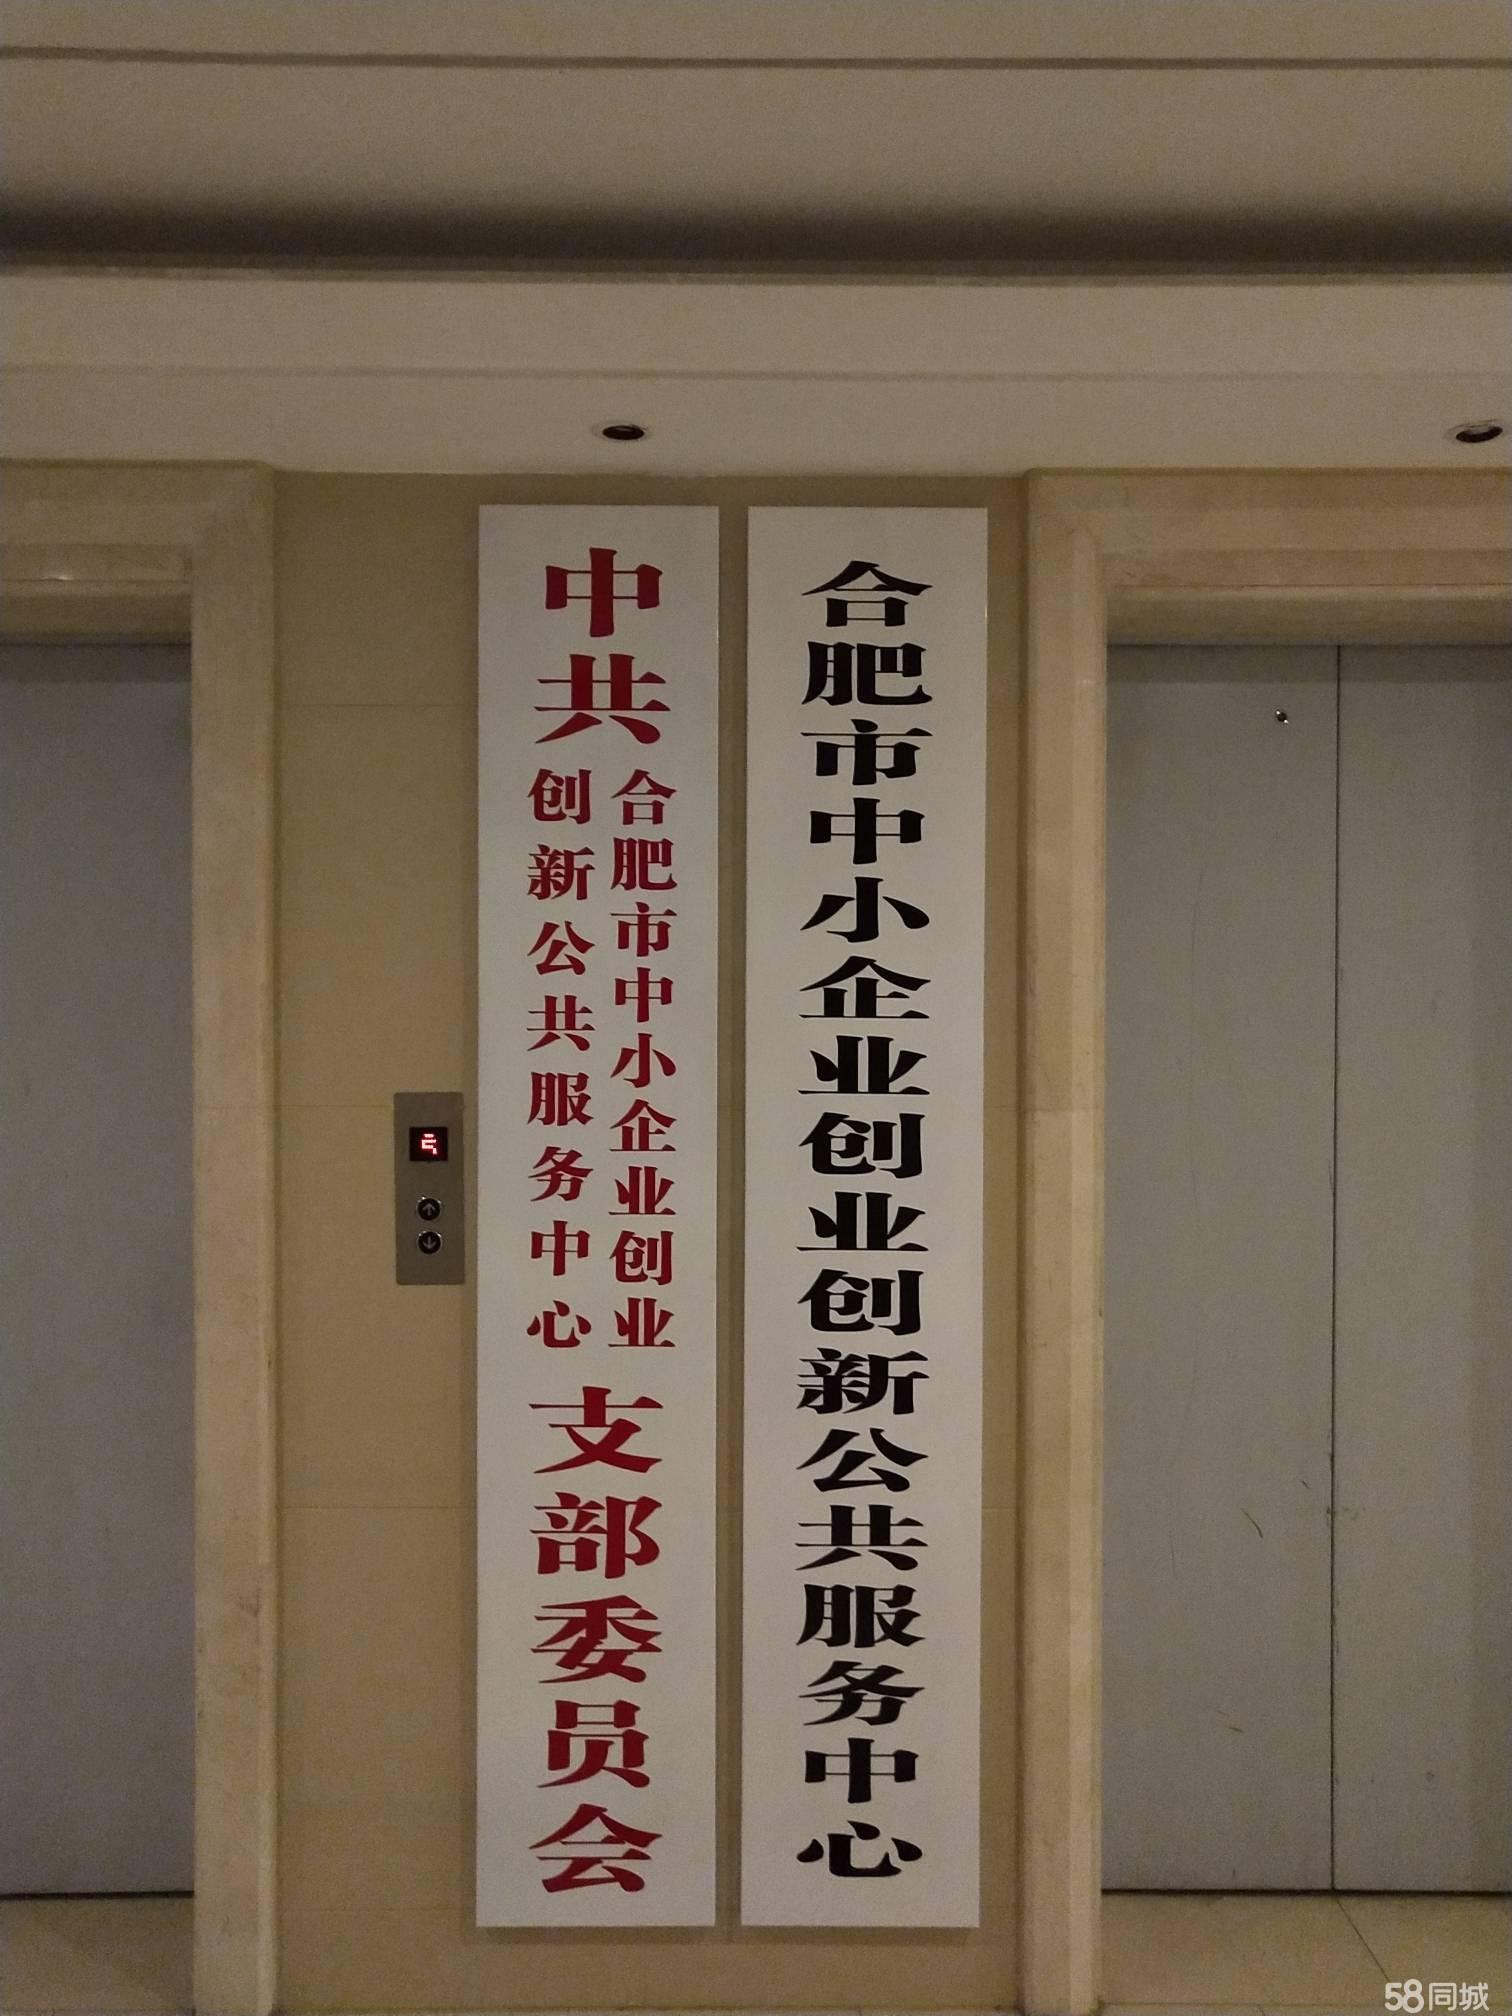 中共
合肥市中小企业创业
创新公共服务中心
支部委员会
合肥市中小企业创业创新公共服务中心
58同城